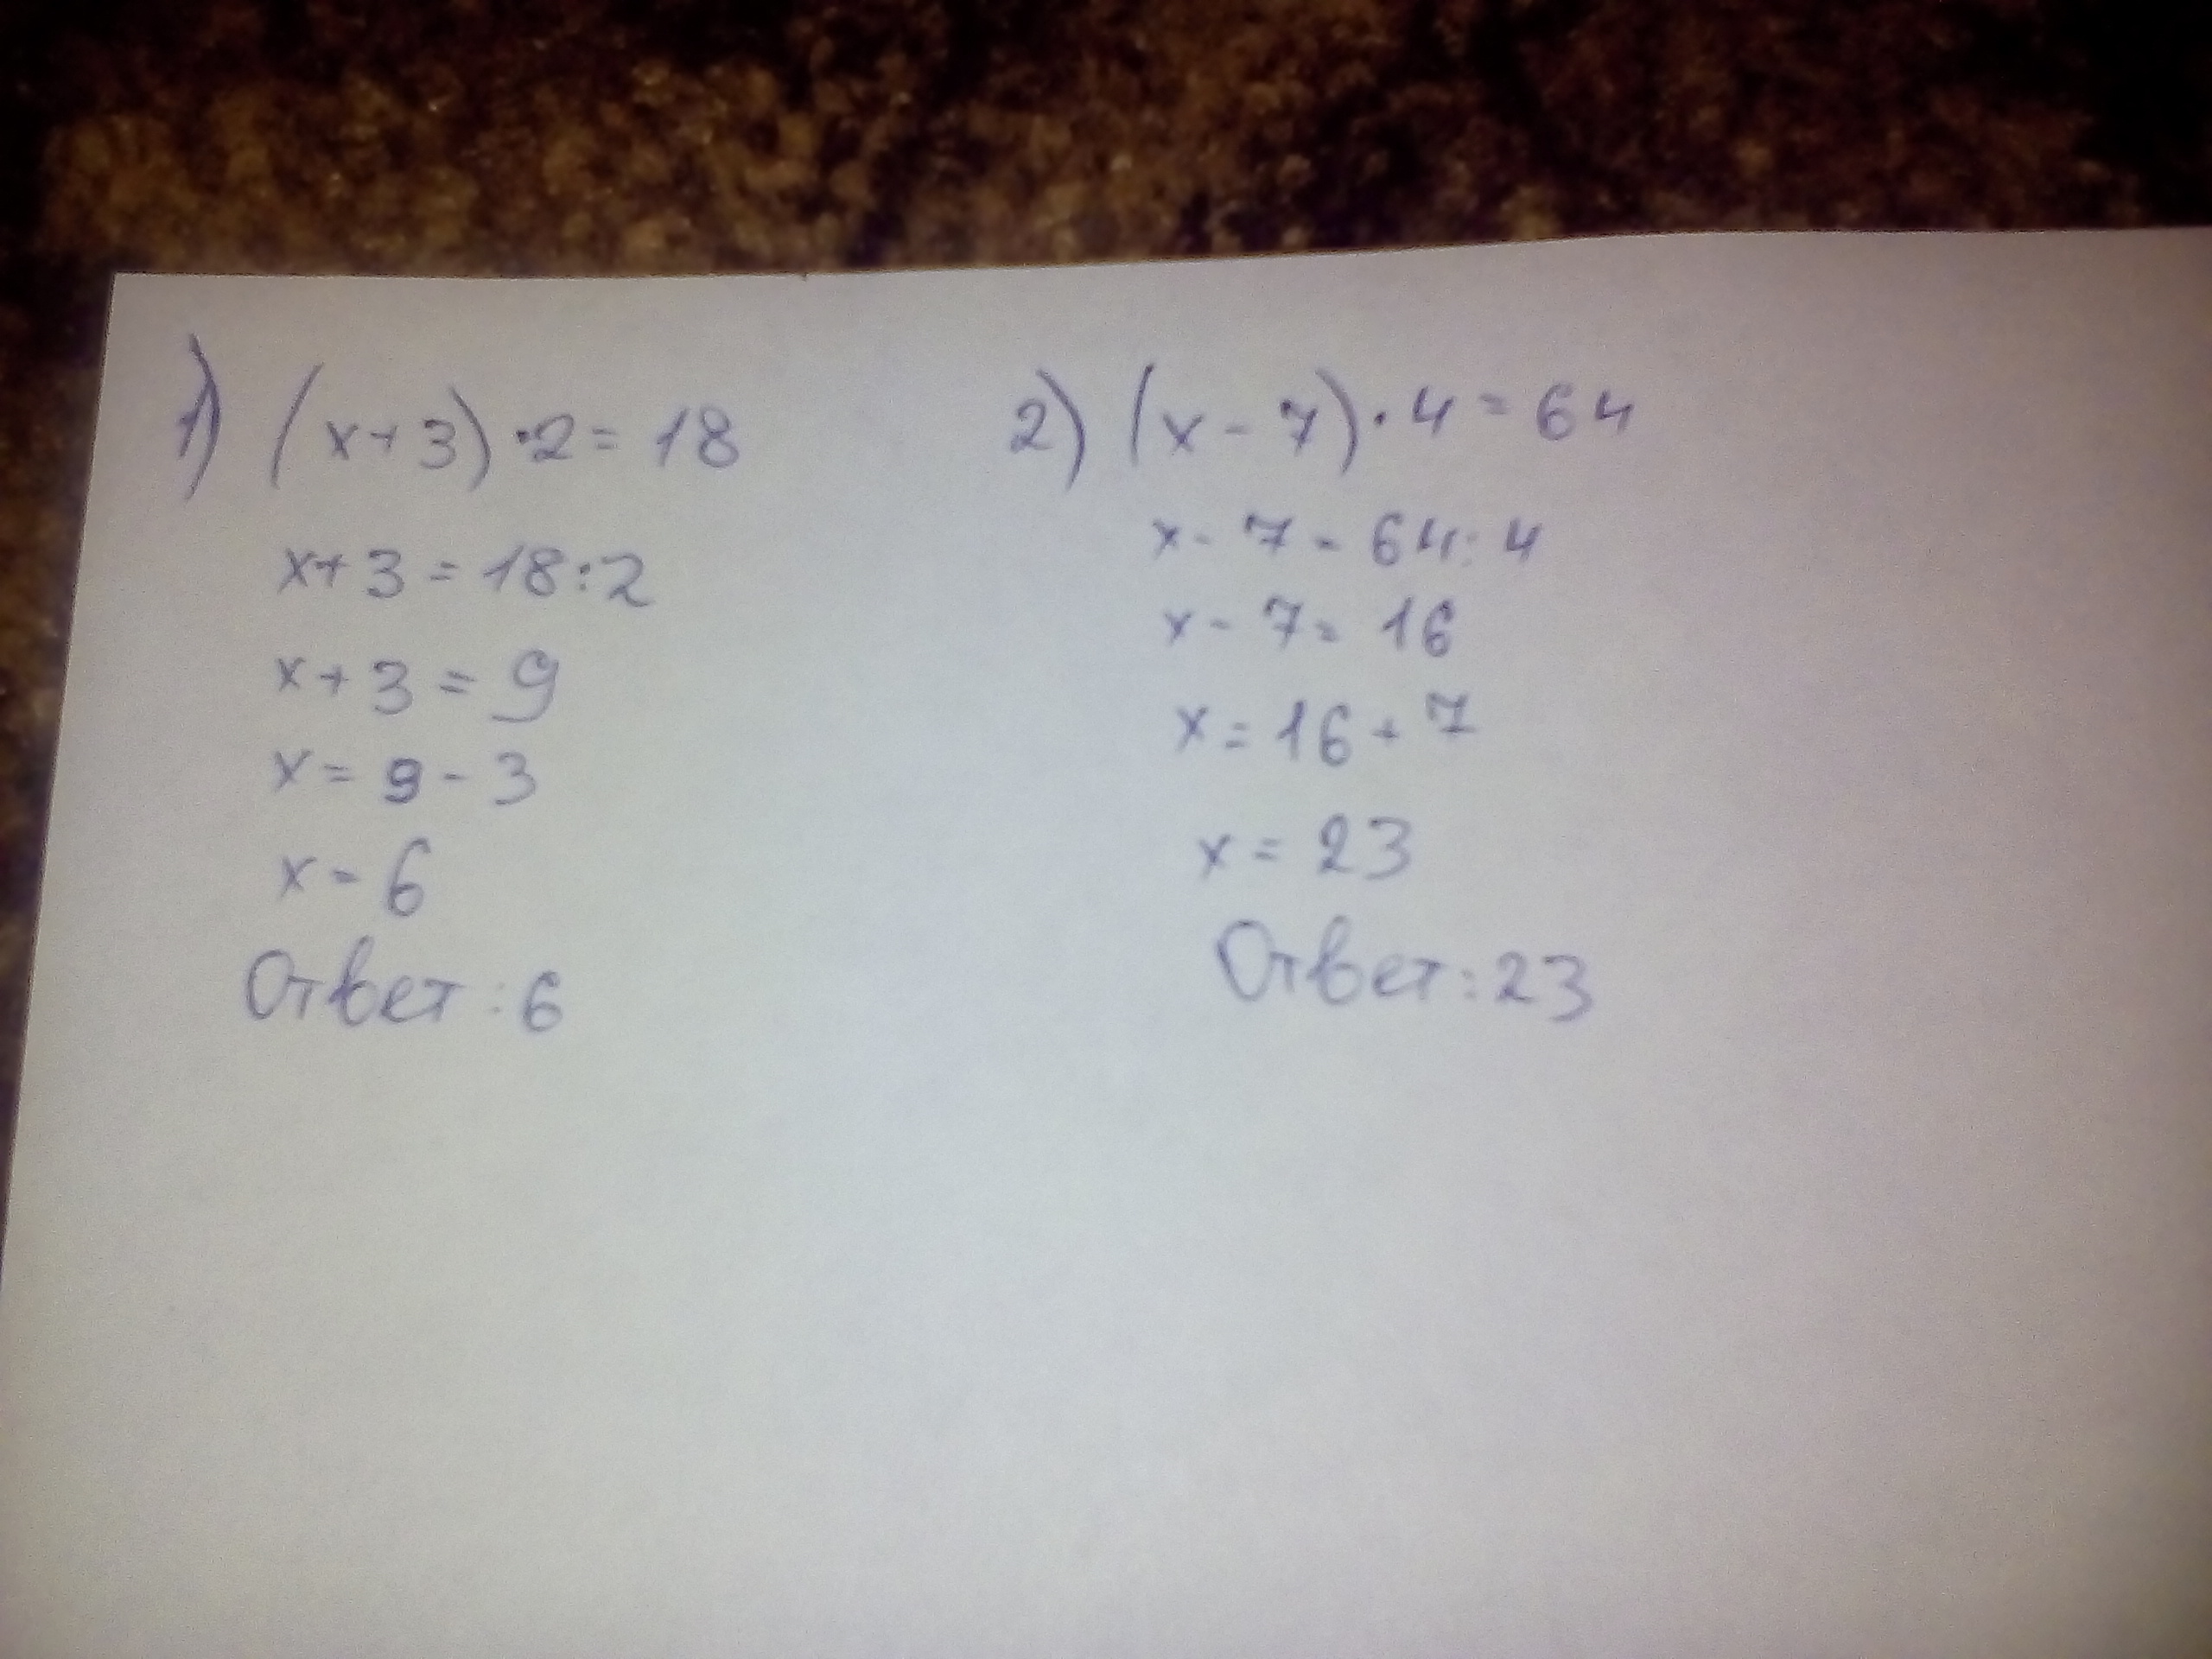 1) (x+3)·2=18
x+3=18:2
x+3=9
x=9-3
x=6
Ответ:6
2) (x-7)·4=64
x-7=64:4
x-7=16
x=16+7
x=23
Ответ:23